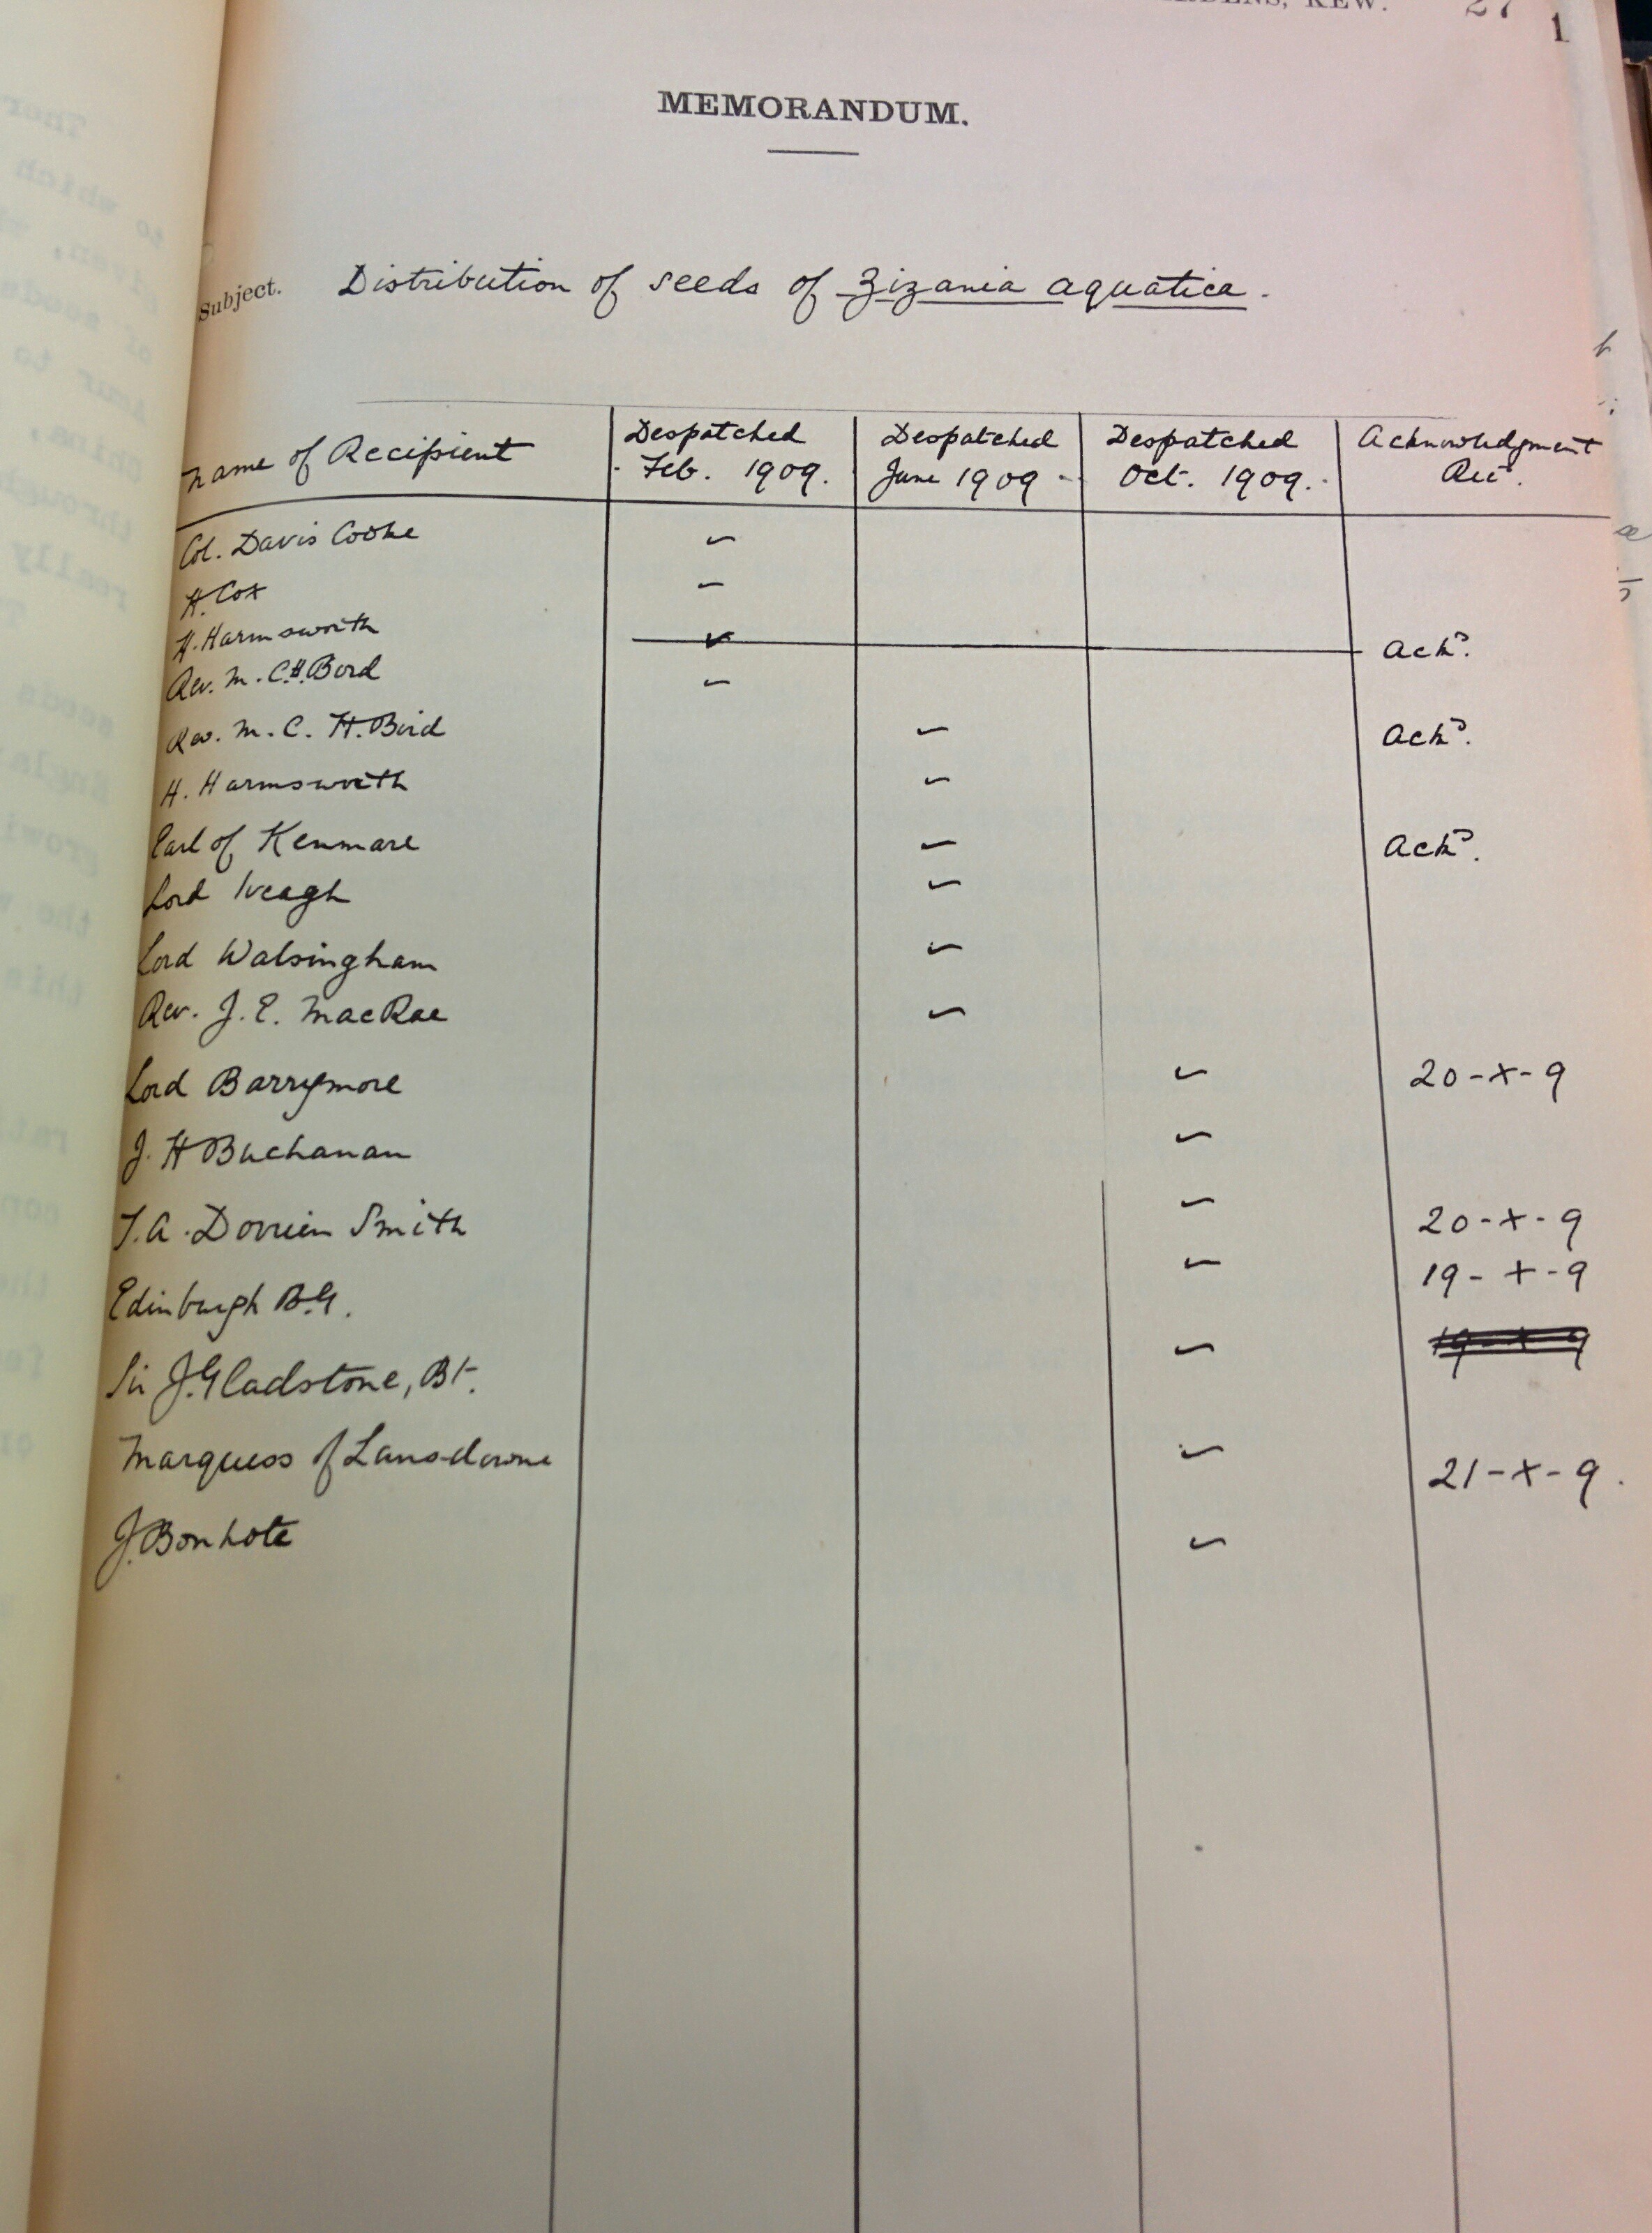 GARDENS, KEW. 27
1
MEMORANDUM.
Subject. Distribution of seeds of Zizania aquatica.
Name of Recipient Despatched Feb. 1909. Despatched June 1909 - Despatched Oct. 1909. Acknowledgment Rec.
Col. Davis Cooke ✓
H. Cox ✓
H. Harmsworth ✓ Ackd.
Rev. M. C.H. Bird ✓
Rev. M. C. H. Bird ✓ Ackd.
H. Harmsworth ✓
Earl of Kenmare ✓ Ackd.
Lord Iveagh ✓
Lord Walsingham ✓
Rev. J. E. MacRae ✓
Lord Barrymore ✓ 20-X-9
J. H Buchanan ✓
T. A. Dorrien Smith ✓ 20-X-9
Edinburgh B.G. ✓ 19-X-9
Sir J. Gladstone, Bt. ✓ 19-X-9
Marquess of Lansdowne ✓ 21-X-9.
J. Bonhote ✓